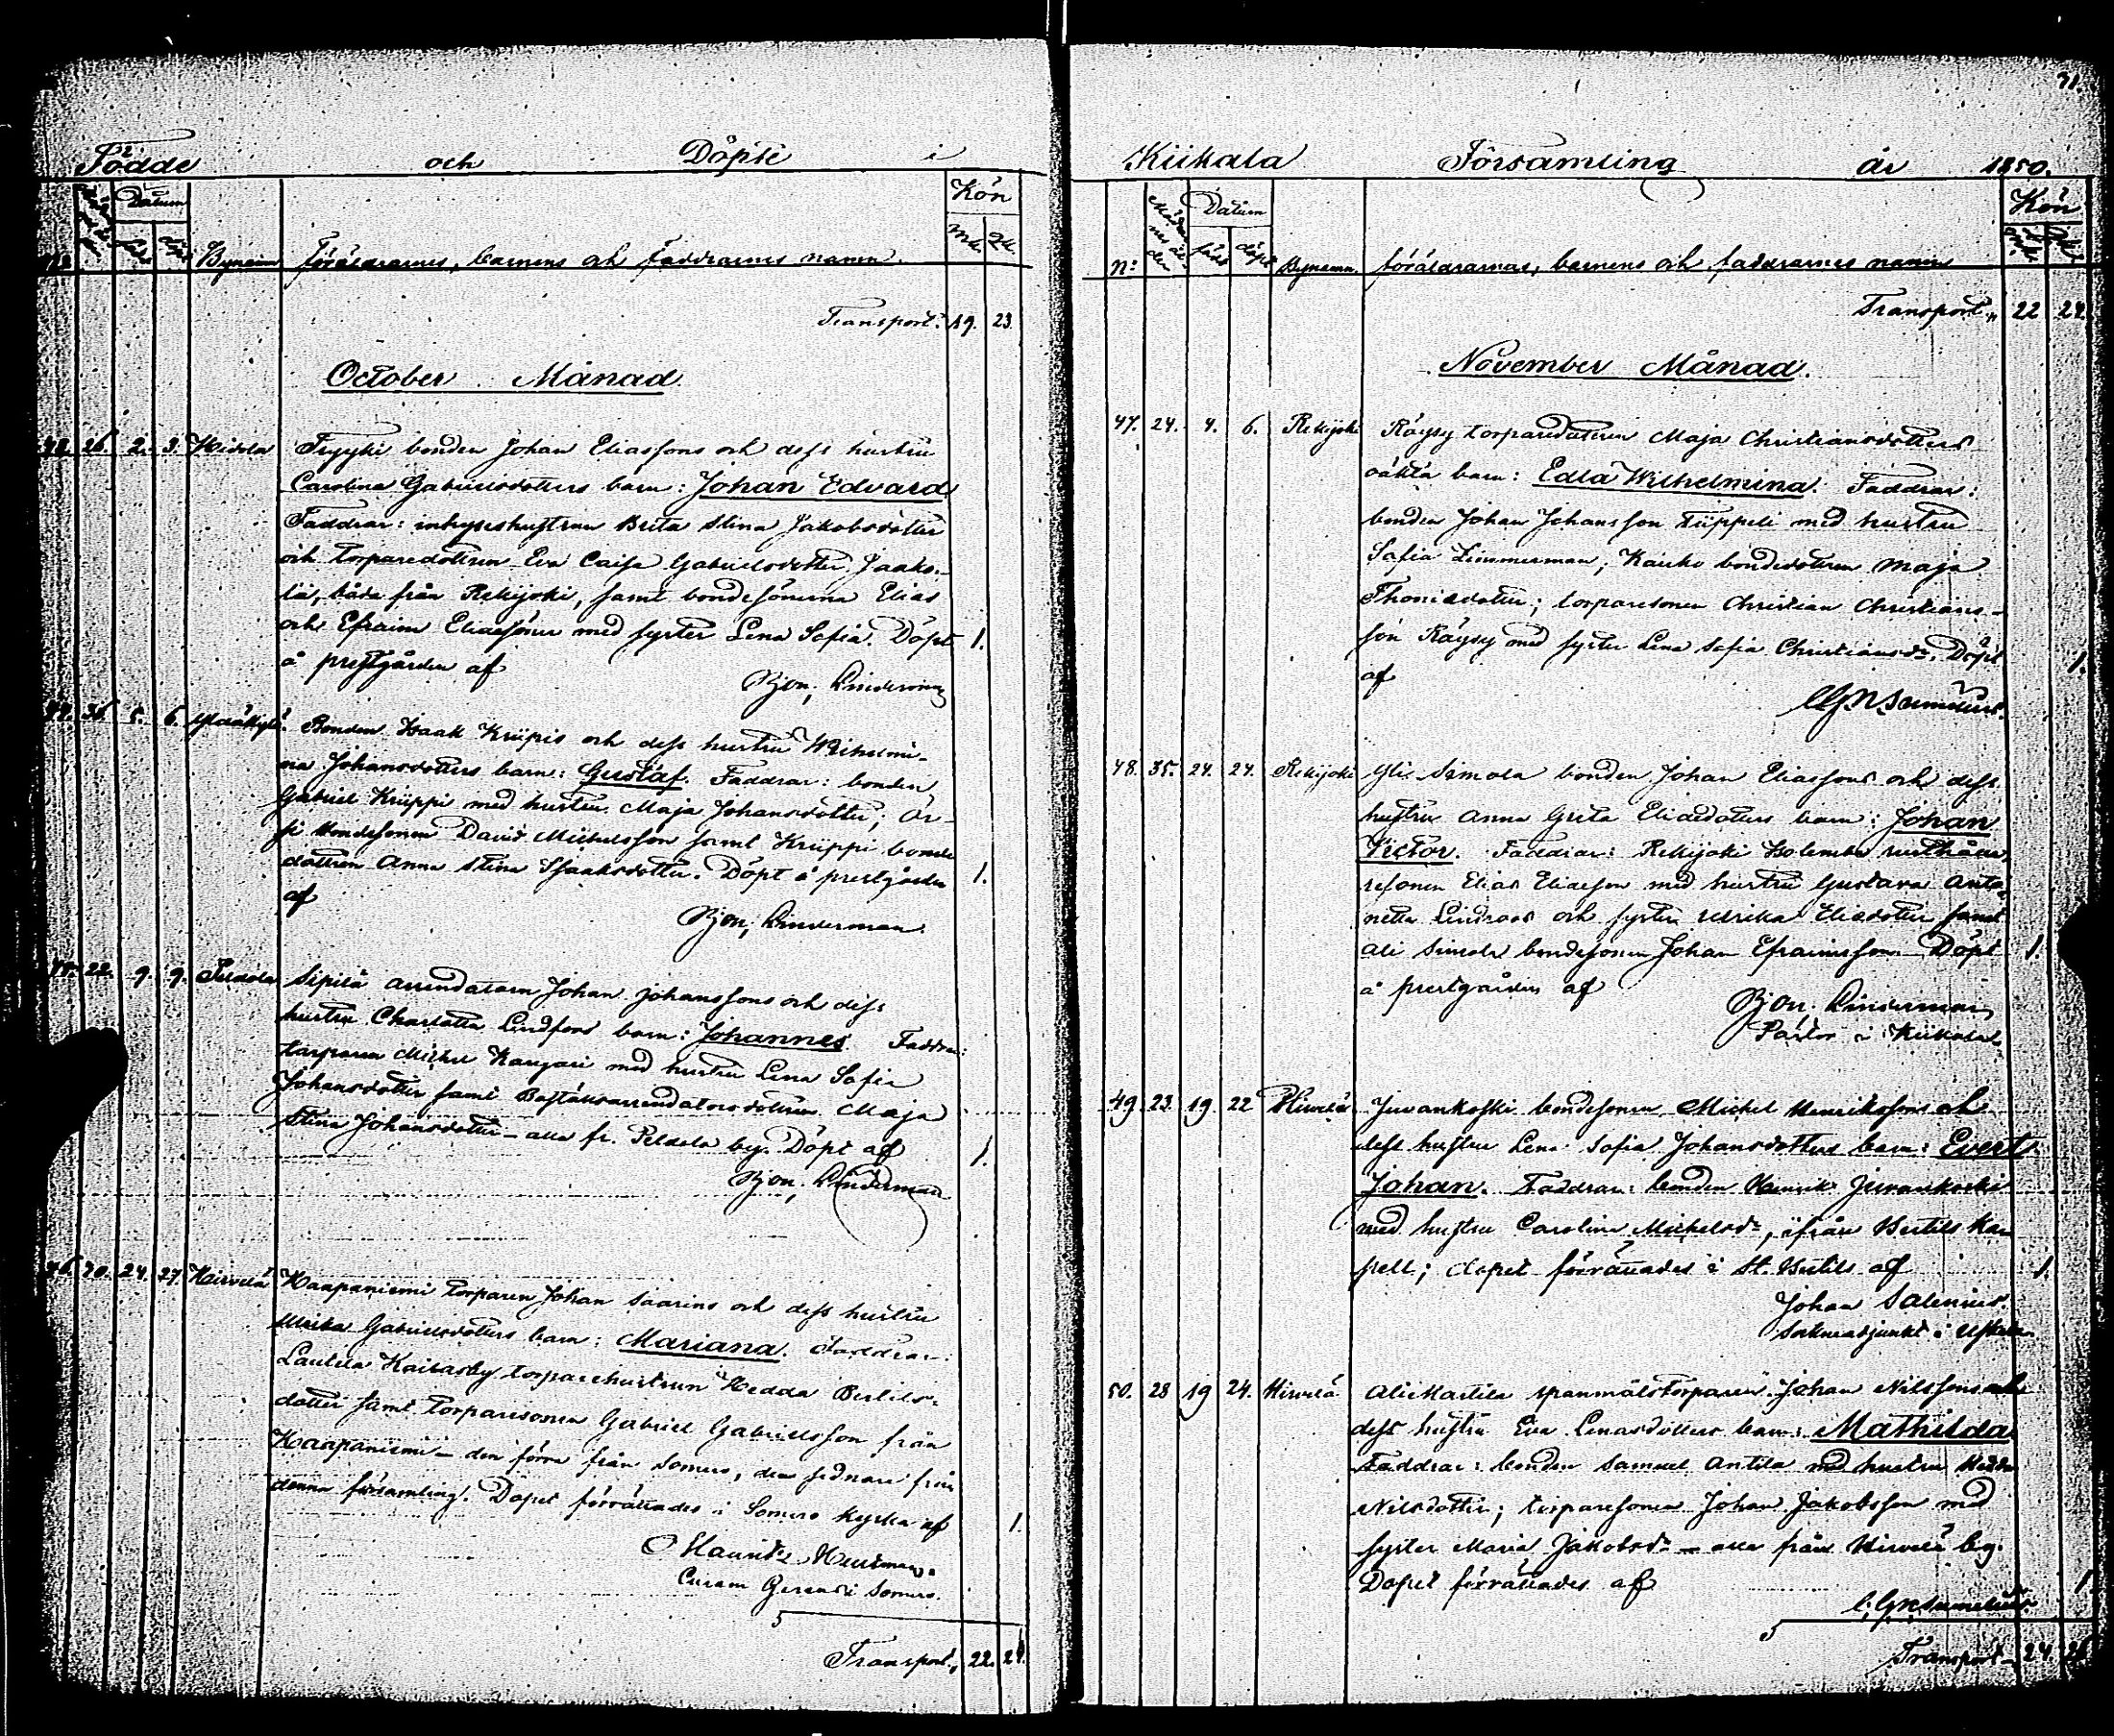 Födde och Döpte i
Datum Kön
Mk. Qk.
Bynamn föräldrarnes, barnens och Faddrarnes namn.
Transport: 19. 23.
October Månad.
43. 26. 2. 3. Hidola bonden Johan Eliassons och dess hustru
Carolina Gabrielsdotters barn: Johan Edvard
Faddrar: inhyseshustrun Brita Stina Jakobsdotter
och torparedottren Eva Caisa Gabrielsdotter Jaako-
lä, båda från Rekijoki, samt bondesönerna Elias
och Efraim Eliaesöner med syster Lena Sofia. Döpt 1.
å prestgården af
Bjon; Linderman
44. 36. 5. 6. Bonden Isaak Kriipis och dess hustru Wilhelmi-
na Johansdotters barn: Gustaf. Faddrar: bonden
Gabriel Kriippi med hustru Maja Johansdotter; Or-
si bondesonen David Michelsson samt Kriippi bonde
dottren Anna Stina Isaaksdotter. Döpt å prestgården 1.
af
Bjon; Linderman.
45. 22. 9. 9. Peldola Sipilä arrendatorn Johan Johanssons och dess
hustru Charlotta Lindfors barn: Johannes. Faddrar:
torparen Michel Kangari med hustru Lena Sofia
Johansdotter samt arrendatorsdottren Maja
Stina Johansdotter – alla fr. Peldola by. Döpt af 1.
Bjon; Linderman
46. 30. 24. 27. Hirvelä Haapaniemi torparen Johan Saarins och dess hustru
Ulrika Gabrielsdotters barn: Mariana. Faddrar:
Lautela Kailasby torparehustrun Hedda Bertils-
dotter samt torparesonen Gabriel Gabrielsson från
Haapaniemi – den förra från Somero, den sednare från
denna församling. Dopet förrättades i Somero kyrka af 1.
Curam Gerens i Somero.
5
Transport, 22. 24.
31.
Kiikala Församling år 1850.
Datum Kön
No: född döpt Bynamn. föräldrarnas, barnens och faddrarnes namn
Transport, 22 24.
November Månad.
47. 24. 4. 6. Rekijoki Räysy torparedottren Maja Christiansdotters
oäkta barn: Edla Wilhelmina. Faddrar:
bonden Johan Johansson Tiippeli med hustru
Sofia Zimmerman; bondedottren Maja
Thomasdotter; torparesonen Christian Christians-
son Räysy med syster Lena Sofia Christiansdr. Döpt 1.
af
48. 35. 24. 24. Rekijoki Yli-Simola bonden Johan Eliassons och dess
hustru Anna Greta Eliaedotters barn: Johan
Victor. Faddrar: Rekijoki rusthålla-
resonen Elias Eliaeson med hustru Gustava Anto-
netta Lindroos och syster Ulrika Eliedotter samt
Ali Simola bondesonen Johan Efraimsson. Döpt 1.
å prestgården af
Bjon; Linderman,
Pastor i Kiikala
49. 23. 19. 22 Hirvelä Juvankoski bondesonen Michel Henrikssons och
dess hustru Lena Sofia Johansdotters barn: Evert
Johan. Faddrar: bonden Henrik Juvankoski
med hustru Carolina Michelsdr, ifrån Bertils Ka
pell; dopet förrättades i St. Bertils af 1.
Johan Salenius.
Sockneadjunkt i Uskela
50. 28 19 24. Hirvelä Alikartila spanmålstorparen Johan Nilssons och
dess hustru Eva Lenasdotters barn: Mathilda
Faddrar: bonden Samuel Antila med hustru Hedda
Nilsdotter; torparesonen Johan Jakobsson med
syster Maria Jakobsdr – alla från Hirvelä by.
Dopet förrättades af 1
5
Transport 24